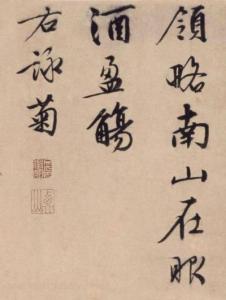 領略南山在眼
酒盈觴
右詠菊